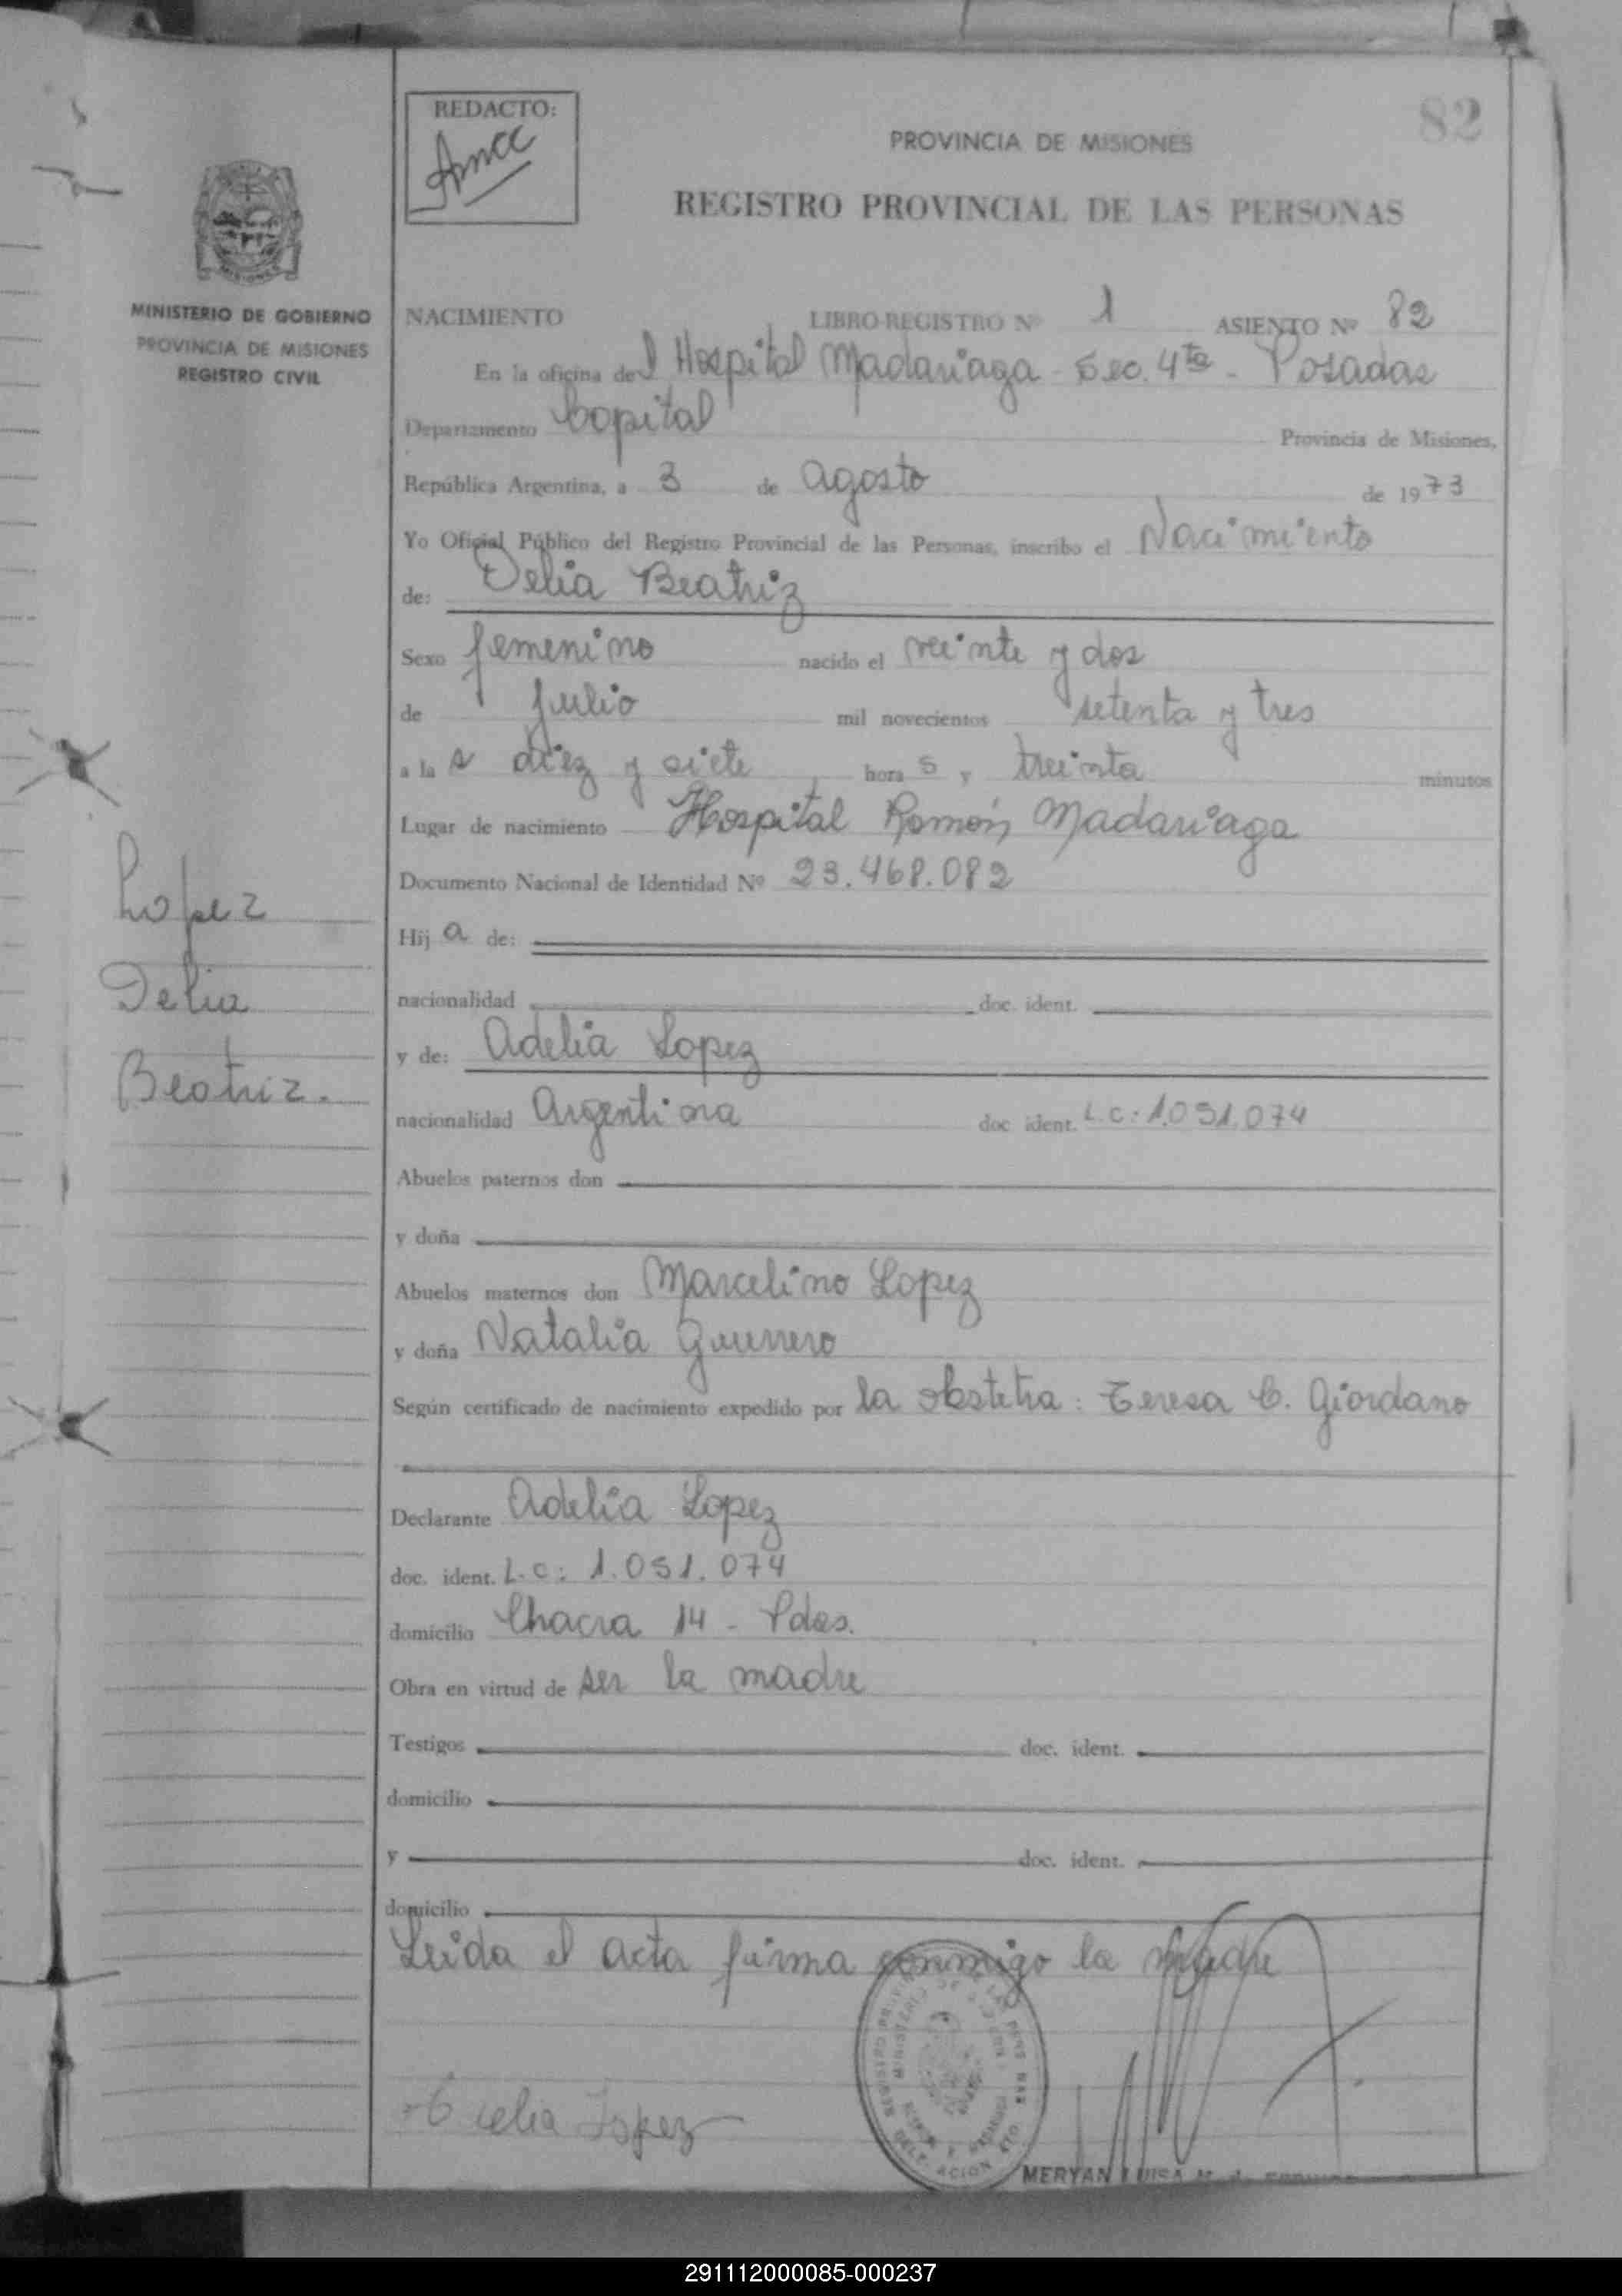 82
REDACTO:
PROVINCIA DE MISIONES
REGISTRO PROVINCIAL DE LAS PERSONAS
MISIONES
MINISTERIO DE GOBIERNO
PROVINCIA DE MISIONES
REGISTRO CIVIL
NACIMIENTO LIBRO-REGISTRO Nº 1 ASIENTO Nº 82
En la oficina del Hospital Madariaga - Sec. 4ta - Posadas
Departamento Capital Provincia de Misiones,
República Argentina, a 3 de Agosto de 1973
Yo Oficial Público del Registro Provincial de las Personas, inscribo el Nacimiento
de: Delia Beatriz
Sexo femenino nacido el veinte y dos
de Julio mil novecientos setenta y tres
a las diez y siete horas y treinta minutos
Lugar de nacimiento Hospital Ramón Madariaga
Documento Nacional de Identidad Nº 23.468.082
Hija de:
nacionalidad doc. ident.
y de: Adelia Lopez
nacionalidad Argentina doc ident. L.C: 1.051.074
Abuelos paternos don
y doña
Abuelos maternos don Marcelino Lopez
y doña Natalia Guerrero
Según certificado de nacimiento expedido por la obstetra: Teresa C. Giordano
Declarante Adelia Lopez
doc. ident. L.C: 1.051.074
domicilio Chacra 14 - Pdas.
Obra en virtud de ser la madre
Testigos doc. ident.
domicilio
y doc. ident.
domicilio
Leida el acta firma conmigo la madre
Lopez
MERYAN LUISA M. de
Lopez
Delia
Beatriz.
291112000085-000237